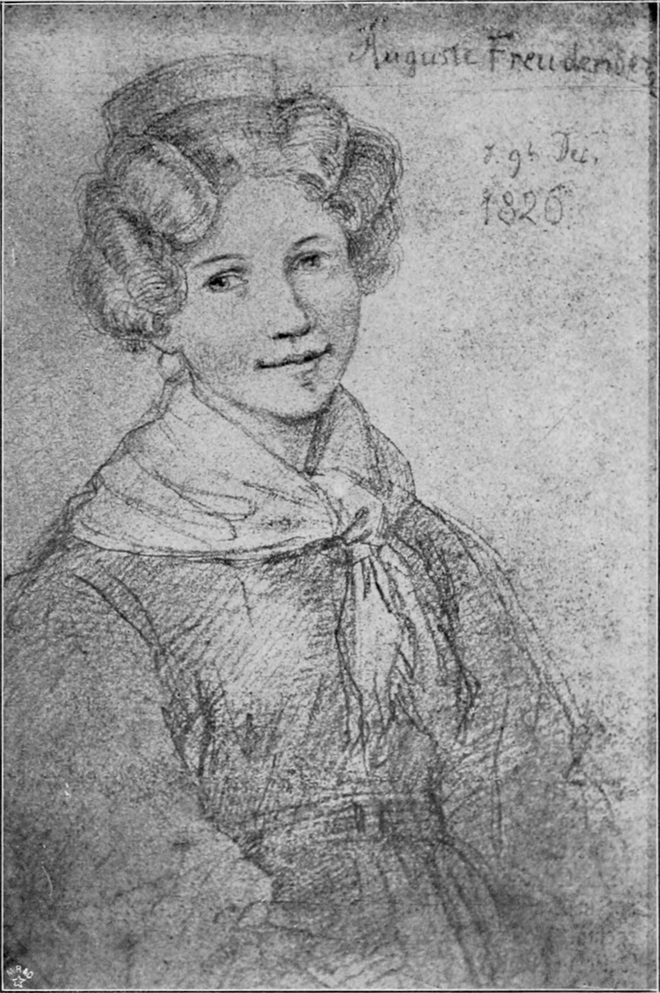 Auguste Freudenberg
d. 9t Dec.
1826